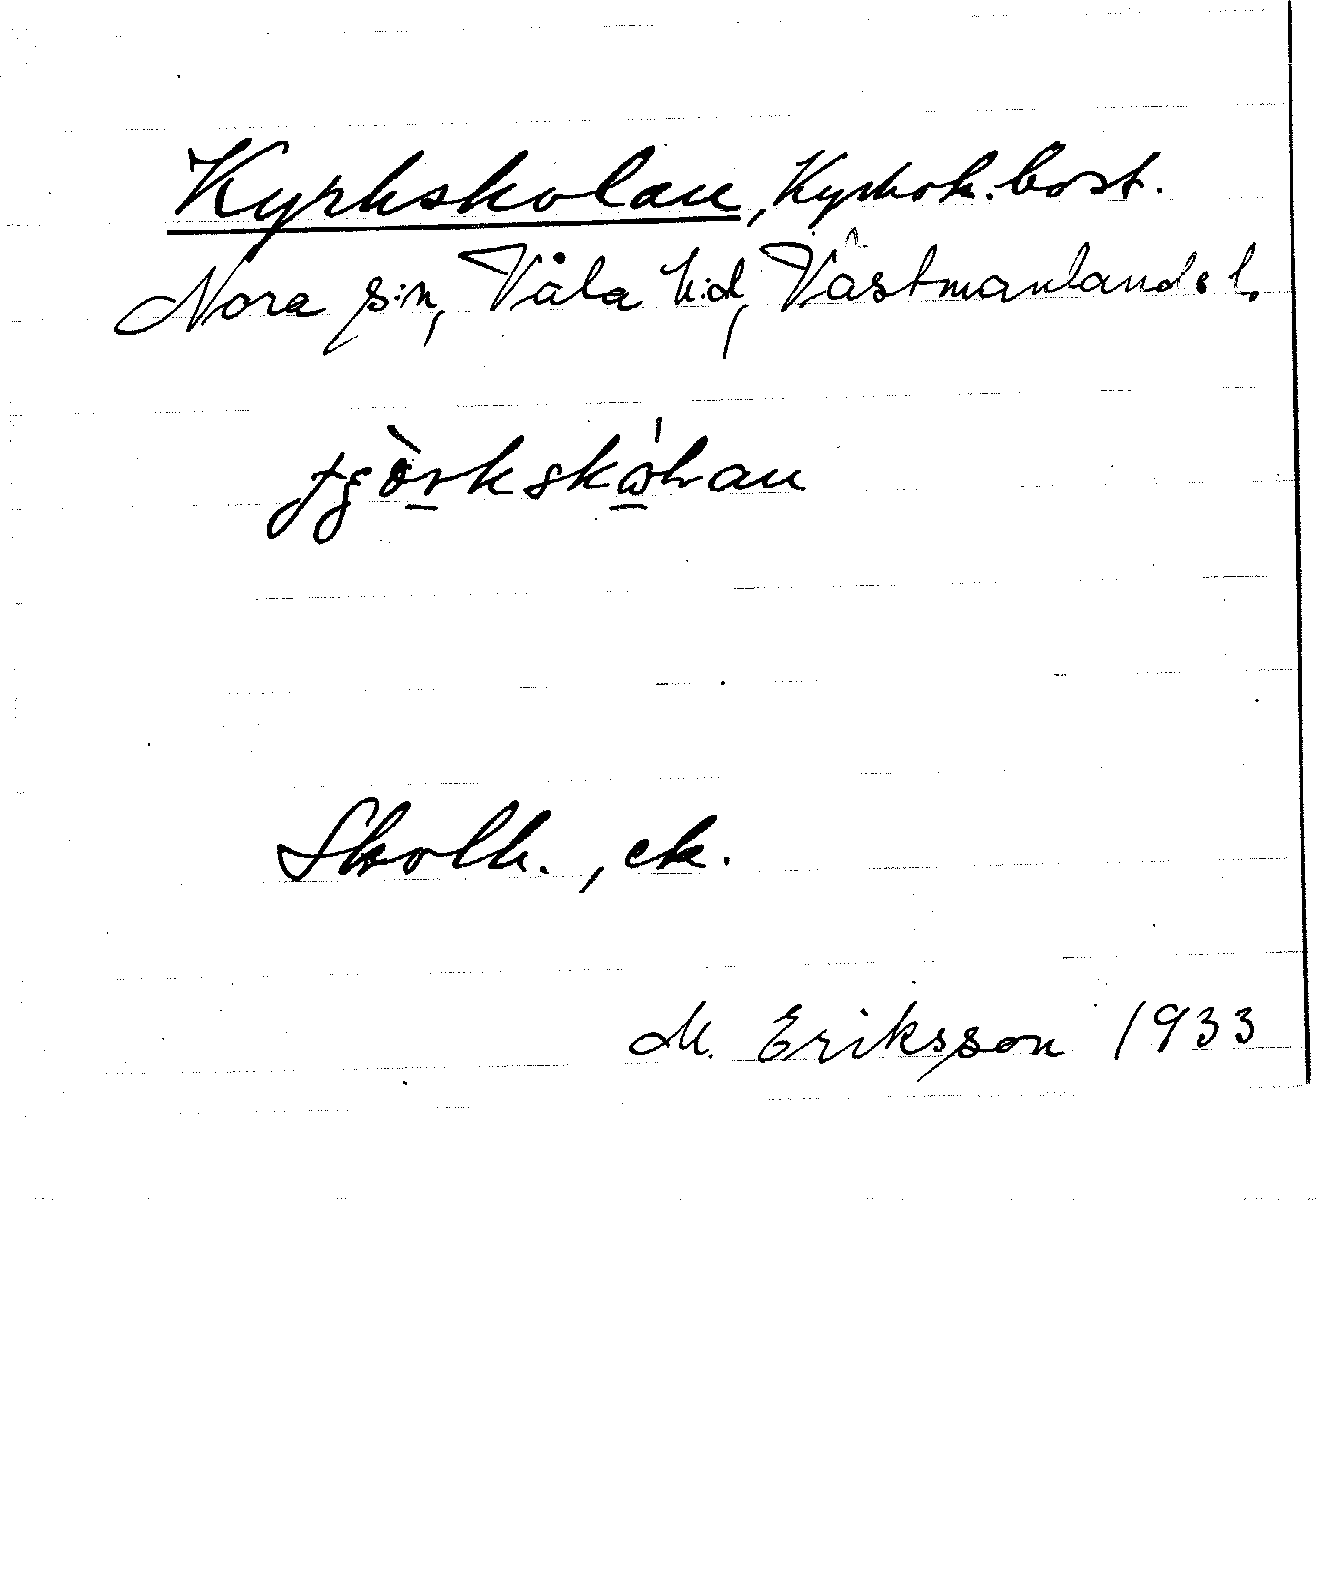 Kyrkskolan, Kyrkoh. bost.
Nora s:n, Våla h:d, Västmanlands l.
Skolh., ek.
M. Eriksson 1933